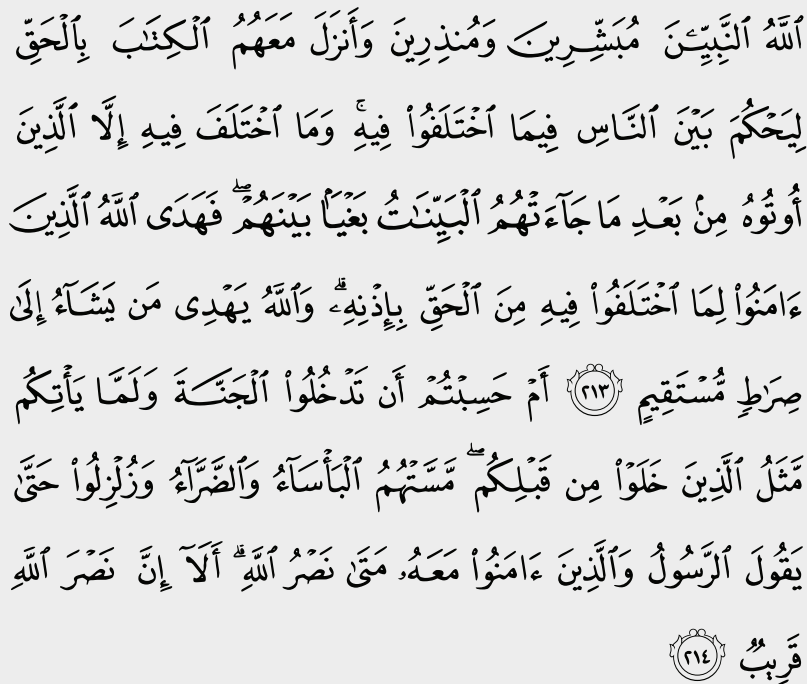 ٱللَّهُ ٱلنَّبِيِّـۧنَ مُبَشِّرِينَ وَمُنذِرِينَ وَأَنزَلَ مَعَهُمُ ٱلْكِتَـٰبَ بِٱلْحَقِّ
لِيَحْكُمَ بَيْنَ ٱلنَّاسِ فِيمَا ٱخْتَلَفُوا۟ فِيهِ ۚ وَمَا ٱخْتَلَفَ فِيهِ إِلَّا ٱلَّذِينَ
أُوتُوهُ مِنۢ بَعْدِ مَا جَآءَتْهُمُ ٱلْبَيِّنَـٰتُ بَغْيًۢا بَيْنَهُمْ ۖ فَهَدَى ٱللَّهُ ٱلَّذِينَ
ءَامَنُوا۟ لِمَا ٱخْتَلَفُوا۟ فِيهِ مِنَ ٱلْحَقِّ بِإِذْنِهِۦ ۗ وَٱللَّهُ يَهْدِى مَن يَشَآءُ إِلَىٰ
صِرَٰطٍ مُّسْتَقِيمٍ ٢١٣ أَمْ حَسِبْتُمْ أَن تَدْخُلُوا۟ ٱلْجَنَّةَ وَلَمَّا يَأْتِكُم
مَّثَلُ ٱلَّذِينَ خَلَوْا۟ مِن قَبْلِكُم ۖ مَّسَّتْهُمُ ٱلْبَأْسَآءُ وَٱلضَّرَّآءُ وَزُلْزِلُوا۟ حَتَّىٰ
يَقُولَ ٱلرَّسُولُ وَٱلَّذِينَ ءَامَنُوا۟ مَعَهُۥ مَتَىٰ نَصْرُ ٱللَّهِ ۗ أَلَآ إِنَّ نَصْرَ ٱللَّهِ
قَرِيبٌ ٢١٤